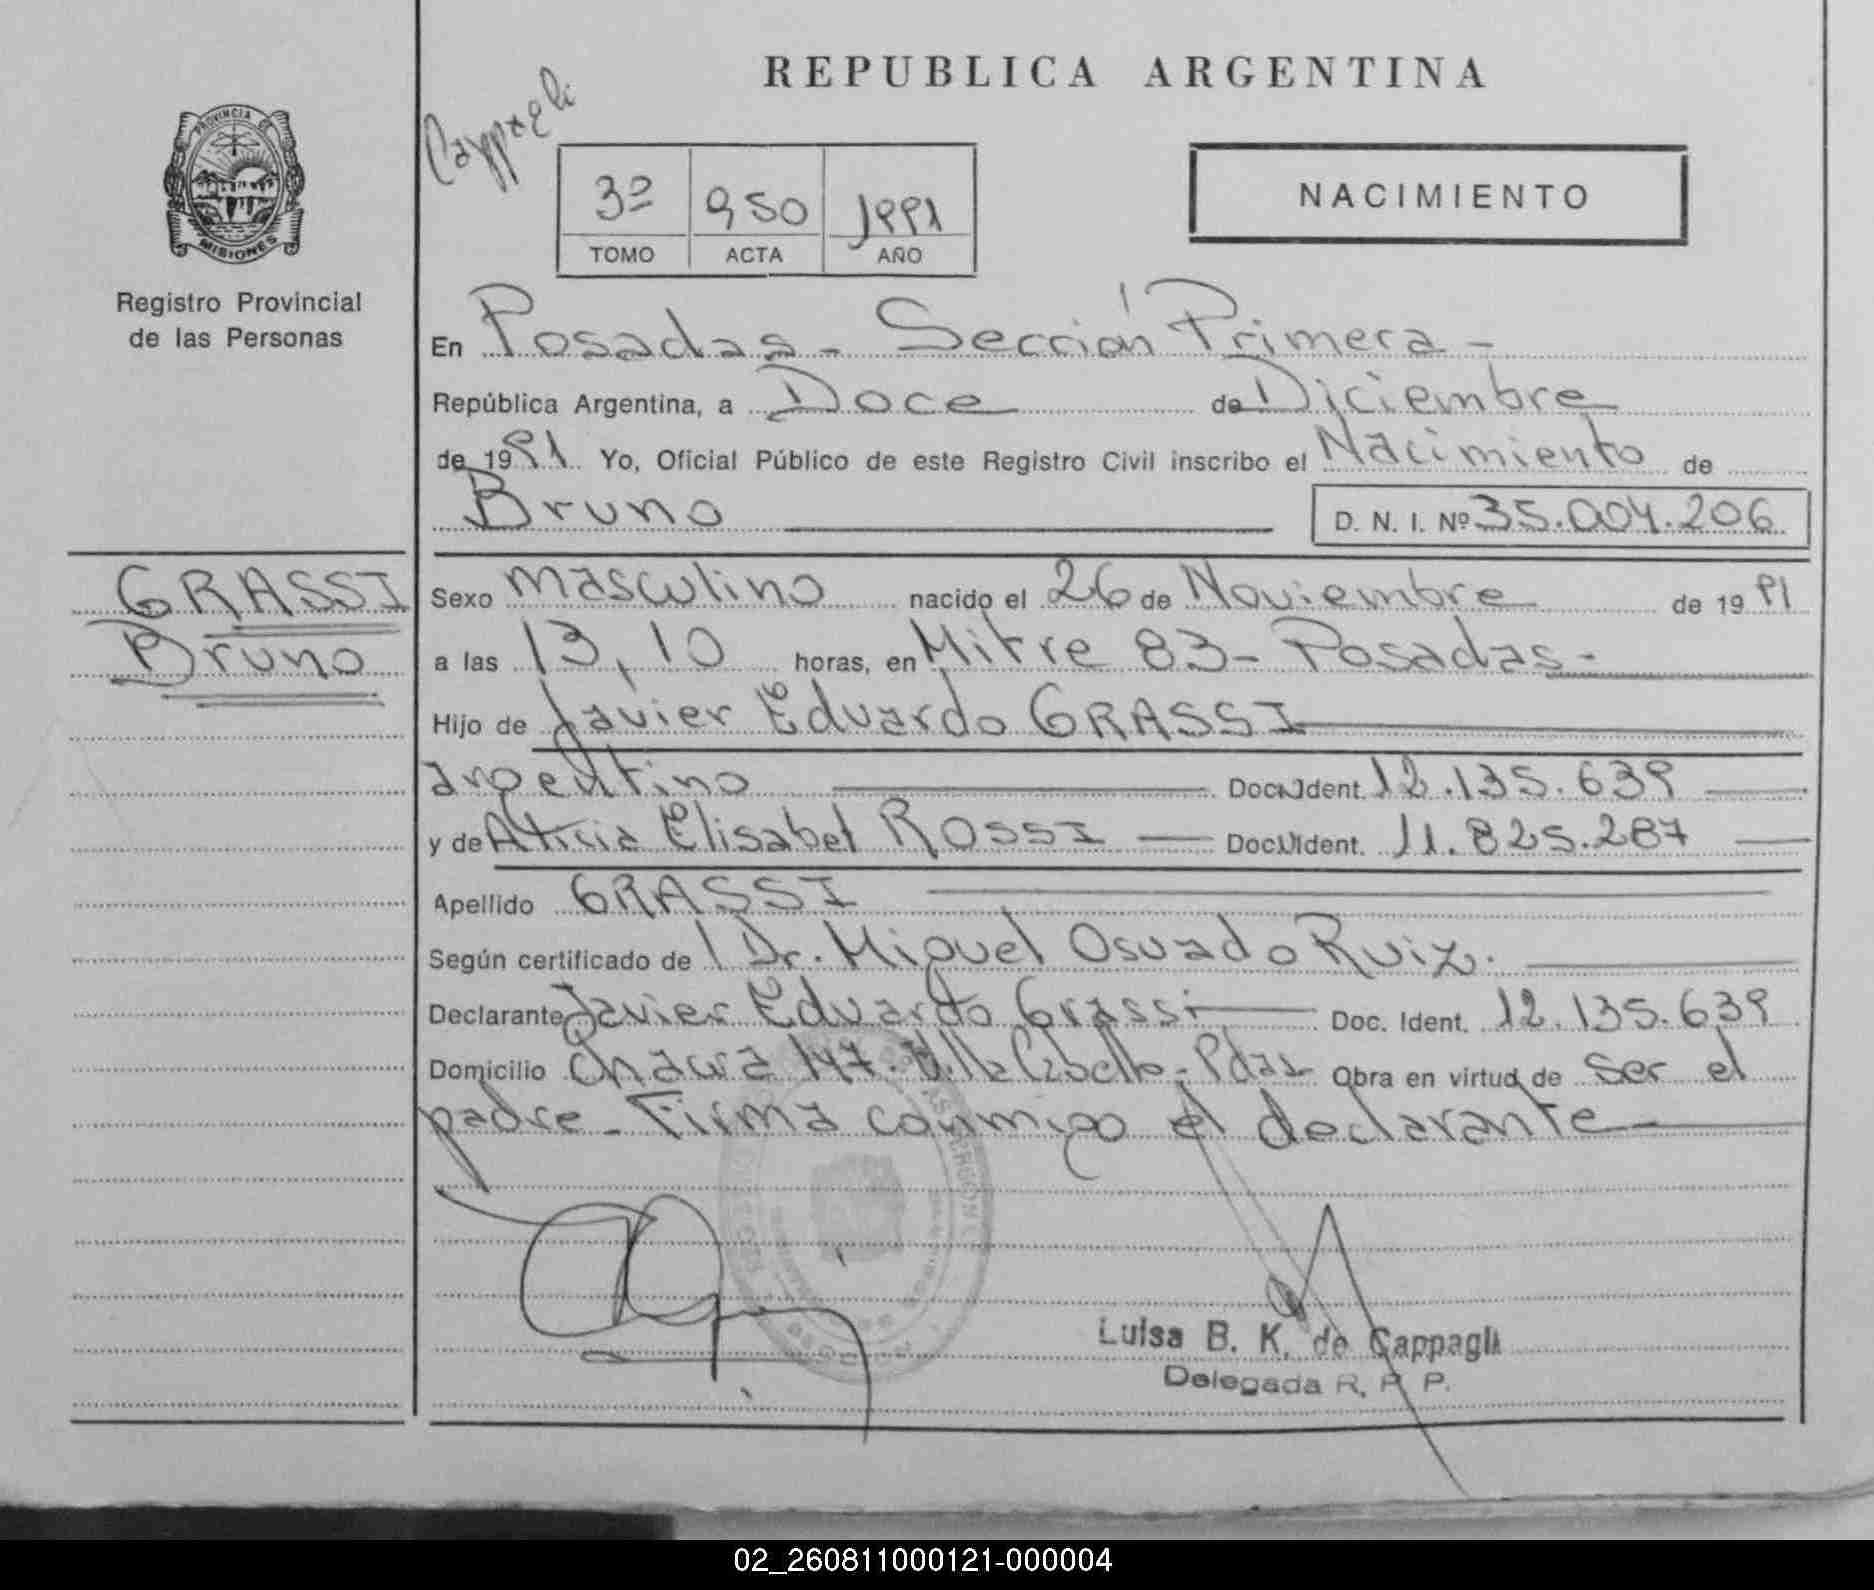 REPUBLICA ARGENTINA
Cappagli
PROVINCIA DE
MISIONES
Registro Provincial
de las Personas
3º 950 1991
TOMO ACTA AÑO
NACIMIENTO
En Posadas - Sección Primera -
República Argentina, a Doce de Diciembre
de 1991 Yo, Oficial Público de este Registro Civil inscribo el Nacimiento de
Bruno D. N. I. Nº 35.004.206
GRASSI
Bruno
Sexo masculino nacido el 26 de Noviembre de 19 91
a las 13,10 horas, en Mitre 83 - Posadas -
Hijo de Javier Eduardo GRASSI
argentino Doc. Ident. 12.135.639
y de Alicia Elisabet ROSSI Doc. Ident. 11.825.287
Apellido GRASSI
Según certificado de Dr. Miguel Osvado Ruiz.
Declarante Javier Eduardo Grassi Doc. Ident. 12.135.639
Domicilio 147. Villa Cabello - Pdas Obra en virtud de ser el
padre - Firma conmigo el declarante
Luisa B. K. de Cappagli
Delegada R. P. P.
02_260811000121-000004